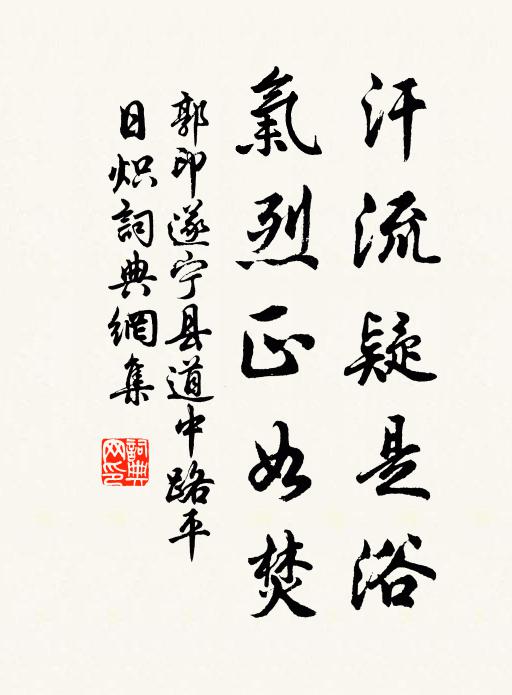 汗流疑是浴
氣烈正如焚
郭印遂宁县道中路平
日炽詞典網集
詞典网印